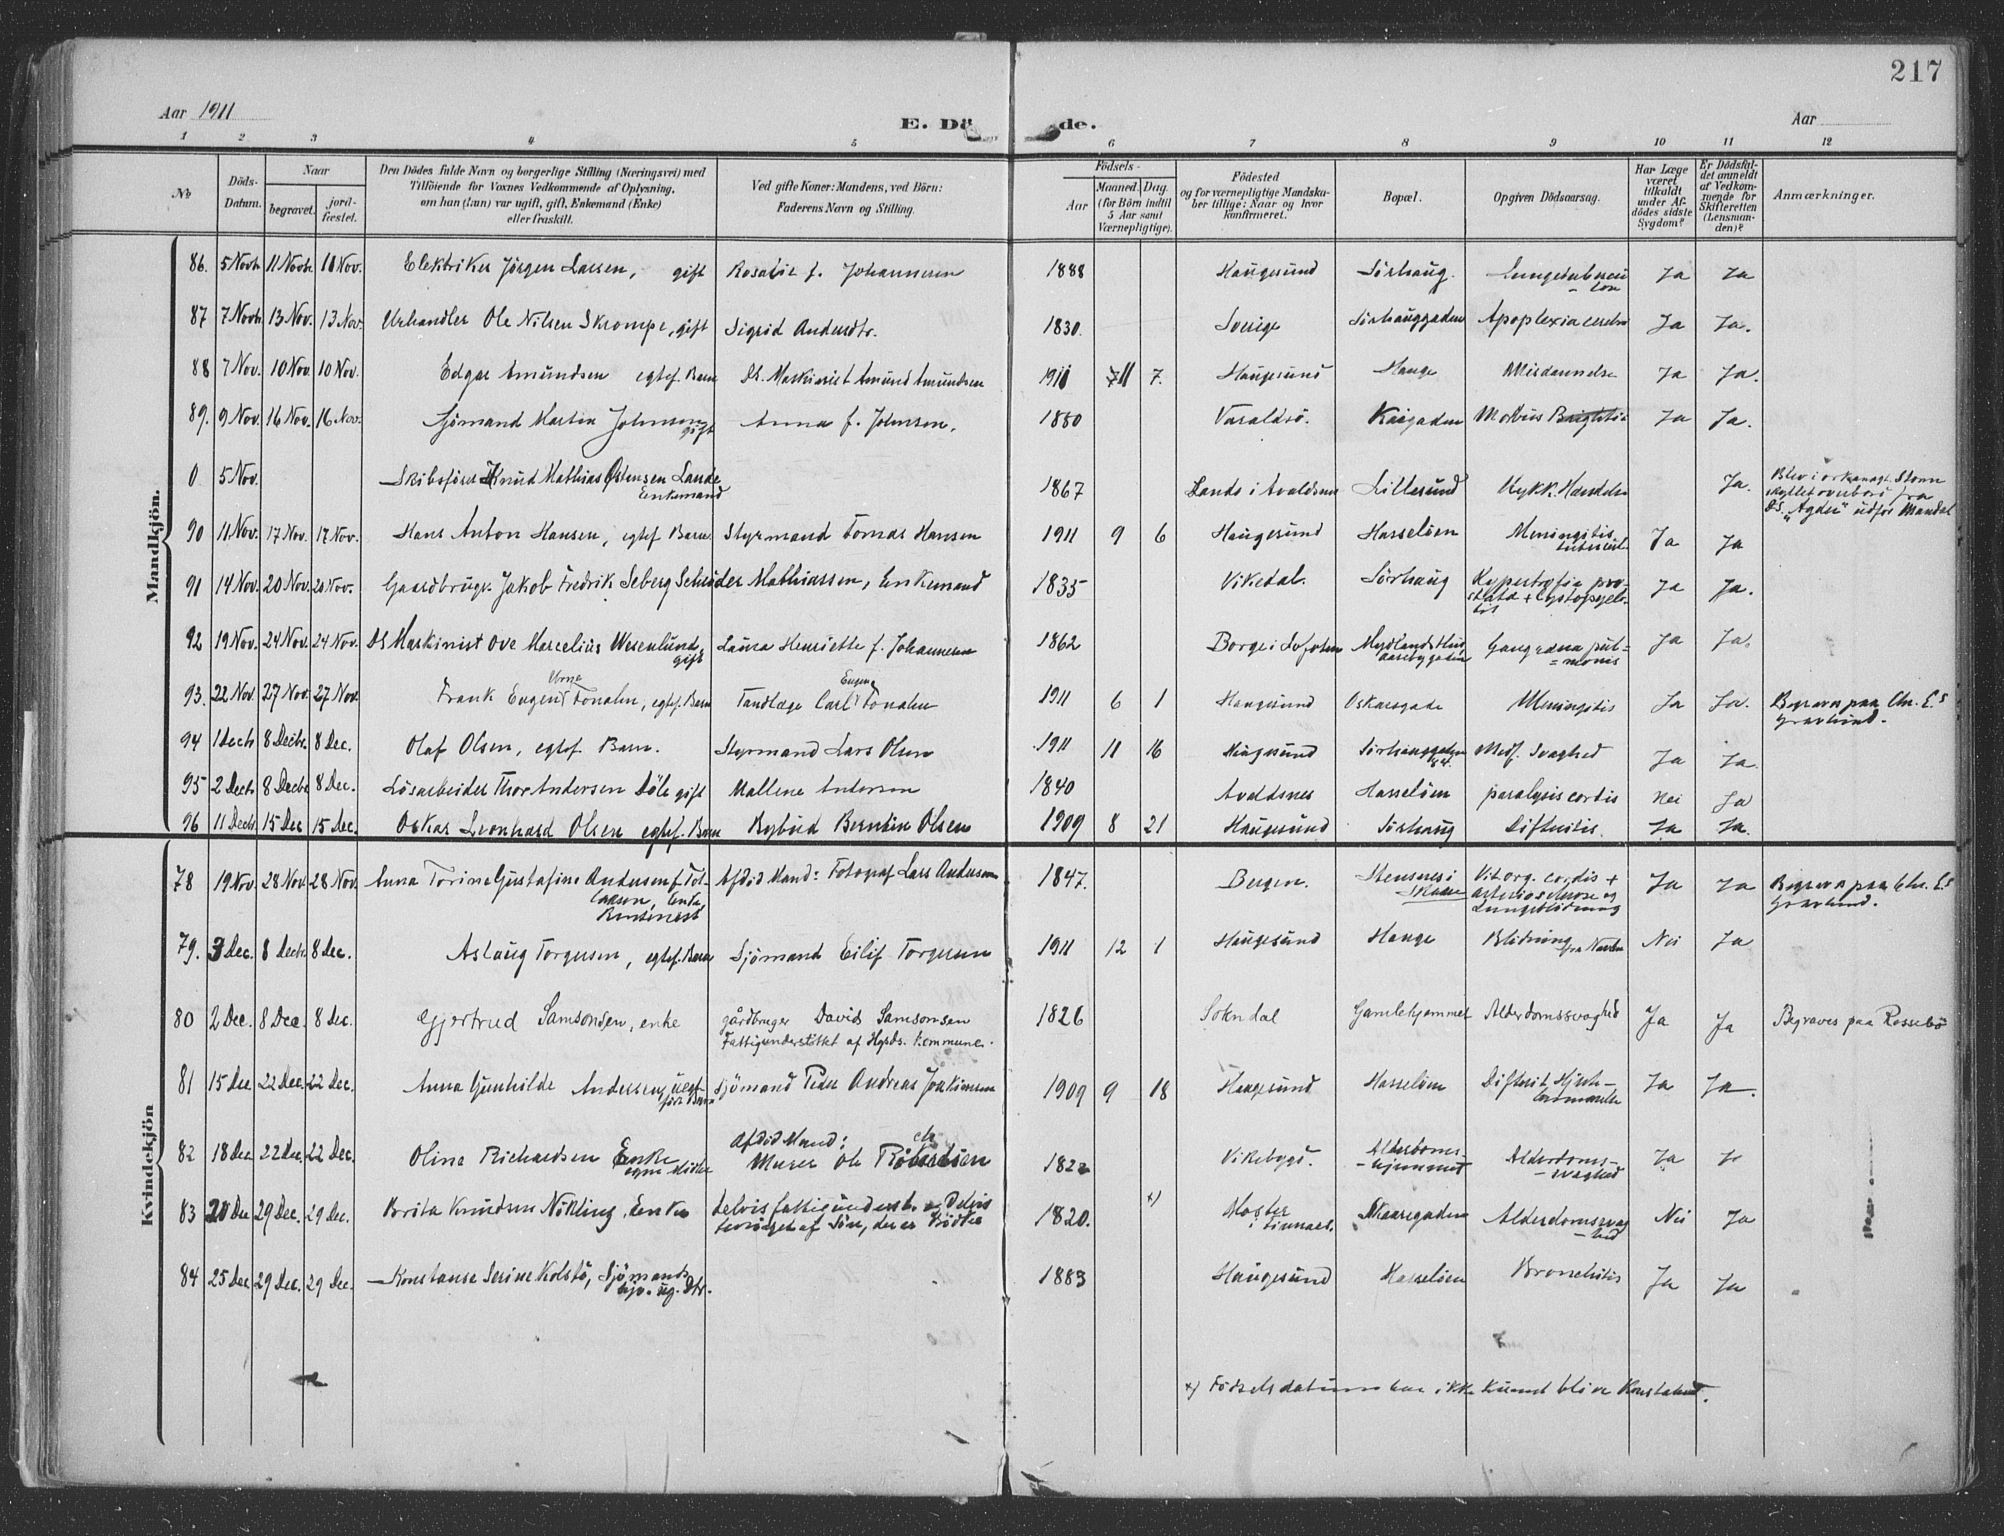 217
Aar 1911
E. Dö de.
Aar
1 2 3 4 5 6 7 8 9 10 11 12
No
Döds-Datum.
Naar
begravet.
jord-fæstet.
Den Dödes fulde Navn og borgerlige Stilling (Næringsvei) med
Tilföiende for Voxnes Vedkommende af Oplysning,
om han (hun) var ugift, gift, Enkemand (Enke)
eller fraskilt.
Ved gifte Koner: Mandens, ved Börn:
Faderens Navn og Stilling.
Födsels-
Aar
Maaned. Dag.
(for Börn indtil
5 Aar samt
Værnepligtige).
Födested
og for værnepligtige Mandska-
ber tillige: Naar og hvor
konfirmeret.
Bopæl.
Opgiven Dödsaarsag.
Har Læge
været
tilkaldt
under Af-
dödes sidste
Sygdom?
Er Dödsfal-
det anmeldt
af Vedkom-
mende for
Skifteretten
(Lensman-
den)?
Anmærkninger.
Mandkjön.
86. 5 Novb. 11 Novb. 11 Nov. Elektriker Jörgen Larsen, gift Rosalie f. Johannesen 1888 Haugesund Sörhaug. Ja Ja
87 7 Novb. 13 Nov. 13 Nov. Urhandler Ole Nilsen Skrompe, gift Sigrid Andersdtr. 1830. Sverige Sörhauggaden Apoplexia cerebri Ja Ja.
88 7 Nov. 10 Nov. 10 Nov. Edgar Amundsen egtef. Barn DS. Maskinist Amund Amundsen 1911 11 7. Haugesund Hauge Misdannelse Ja Ja.
89. 9 Nov. 16 Nov. 16 Nov. Sjömand Martin Johnsen gift Anna f. Johnsen. 1880 Varaldsö. Kaigaden Morbus Brightii Ja Ja.
0 5 Nov. Skibsförer Knud Mathias Östensen Lande Enkemand 1867 Lande i Avaldsnes Lillesund Ulykk. Hændelse Ja. Blev i orkanagt. Storm
skyllet overbord fra
DS. "Agder" udfor Mandal
90 11 Nov. 17 Nov. 17 Nov. Hans Anton Hansen, egtef Barn Styrmand Tomas Hansen 1911 9 6 Haugesund Hasselöen Meningitis tubercul. Ja Ja
91 14 Nov. 20 Nov. 20 Nov. Gaardbruger Jakob Fredrik Seberg Schröder Mathiassen, Enkemand 1835 Vikedal. Sörhaug Hypertrofia pro-
stata + Ja Ja.
92 19 Nov. 24 Nov. 24 Nov. DS Maskinist Ove Marcelius Wesenlund, gift Laura Henriette f. Johannesen 1862 Borge i Lofoten Gangræna pul-
monis Ja Ja.
93. 22 Nov. 27 Nov. 27 Nov. Frank Eugen Tonahn, egtef. Barn Tandlæge Carl Eugen Tonahn 1911 6 1 Haugesund Oskarsgade Meningitis Ja Ja. Begraven paa Chr. E.s
Gravlund.
94 1 Decb. 8 Decbr. 8 Dec. Olaf Olsen, egtef. Barn. Styrmand Lars Olsen 1911 11 16 Haugesund Sörhauggaden Medf. Svaghed Ja Ja.
95 2 Decb 8 Decbr 8 Dec. Lösarbeider Thor Andersen Döle gift Mallene Andersen 1840 Avaldsnes Hasselöen paralysis cordis Nei Ja
96 11 Decbr 15 Dec 15 Dec. Oskar Leonhard Olsen egtef. Barn Rybud Berntin Olsen 1909 8 21 Haugesund Sörhaug Difteritis. Ja Ja.
Kvindekjön
78 19 Nov. 28 Nov 28 Nov. Anna Torine Gustafine Andersen f. Tol-
laksen, Enke, Afdöd Mand: Fotograf Lars Andersen 1847. Bergen. Stensnes i
Skaare Vit. org. cordis +
arteriosclerose og
Lungeblödning Ja Ja Begraven paa Chr. E.s
Gravlund.
79. 3 Dec. 8 Decbr. 8 Dec. Aslaug Torgersen, egtef. Barn Sjömand Eilif Torgersen 1911 12 1 Haugesund Hauge Blödning fra Navlen Nei Ja
80 2 Dec. 8 Dec. 8 Dec. Gjertrud Samsonsen, enke gårdbruger David Samsonsen
Fattigunderstöttet af Hgsds. Kommune. 1826 Sokndal Gamlehjemmet Alderdomssvaghed Ja Ja Begraves paa Rossebö
81 15 Dec 22 Dec. 22 Dec. Anna Gunhilde Andersen, uegte födt Barn Sjömand Peder Andreas Joakimsen 1909 9 18 Haugesund Hasselöen Difterit, Hjerte-
lammelse Ja Ja.
82 18 Dec 22 Dec 22 Dec. Oline Richardsen Enke Afdöd Mand:
Murer Ole 1822 Vikebygd. Alderdoms-
hjemmet Alderdoms-
svaghed Ja
83 20 Dec 29 Dec. 29 Dec. Brita Knudsen Nökling, Enke delvis fattigunderst. og Delvis
forsörget af Sön, der er 1820. x) Moster
i Finnaas. Skaaregaden Alderdomssvag
hed Nei Ja
84 25 Dec 29 Dec. 29 Dec. Konstanse Serine Kolstö, Sjömands
ug. Dtr. 1883 Haugesund Hasselöen Bronchitis Ja Ja
x) Födselsdatum har ikke kunnet blive konstateret.